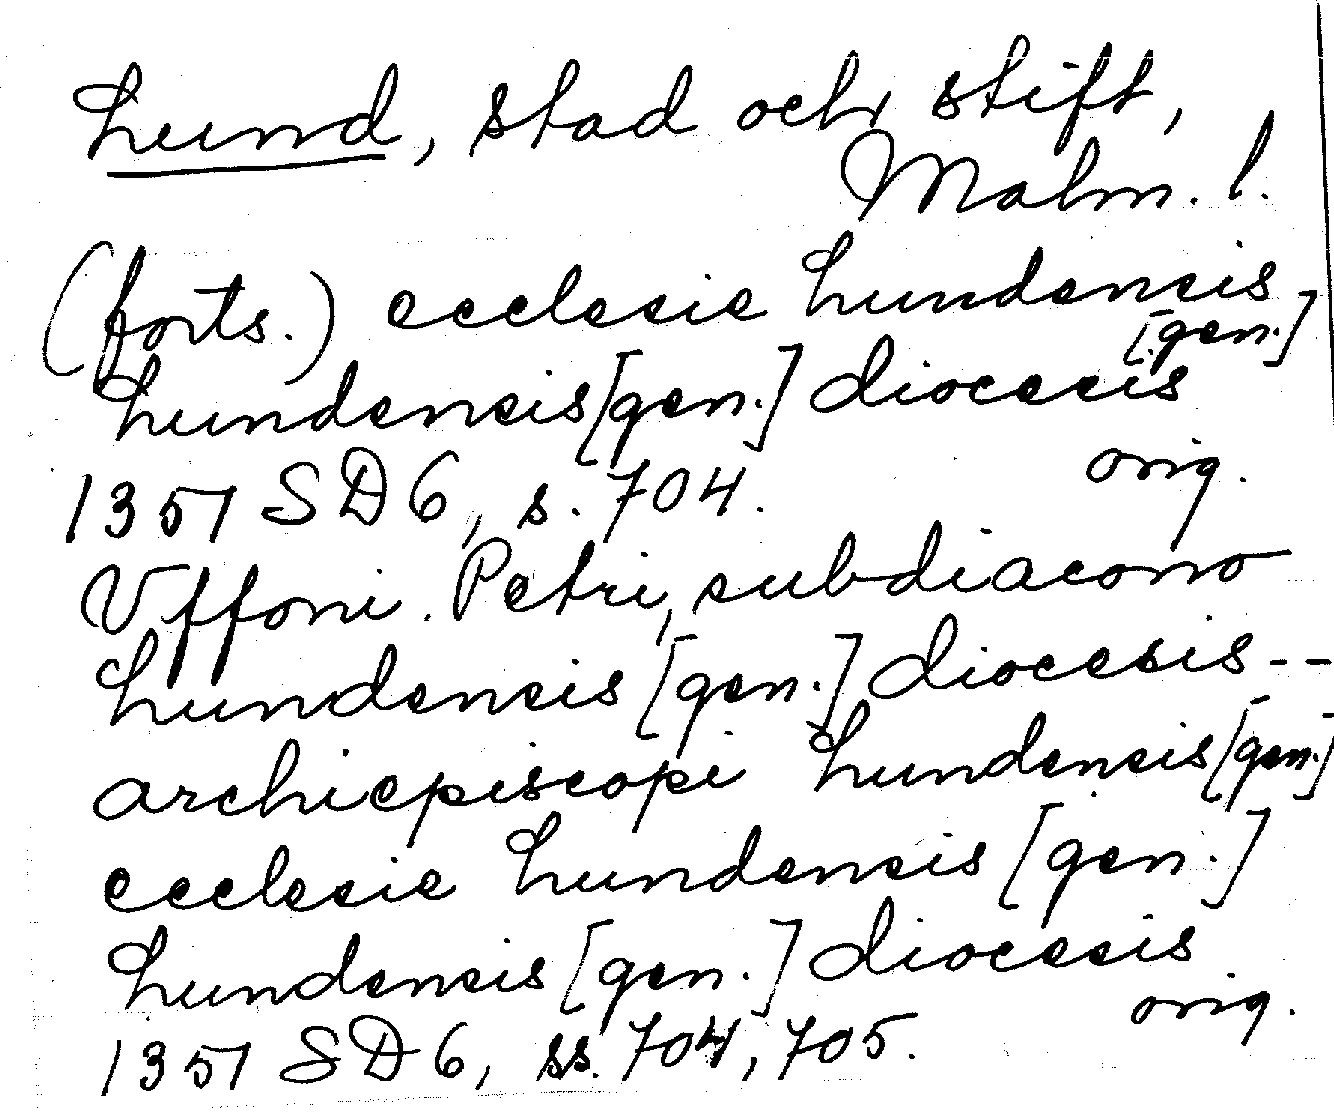 Lund, stad och stift,
Malm. l.
(forts.) ecclesie Lundensis
[gen.]
Lundensis [gen.] diocesis
1351 SD 6, s. 704. orig.
Vffoni. Petri, subdiacono
Lundensis [gen.] diocesis--
archiepiscopi Lundensis [gen.]
ecclesie Lundensis [gen.]
Lundensis [gen.] diocesis
orig.
1351 SD 6, ss. 704, 705.